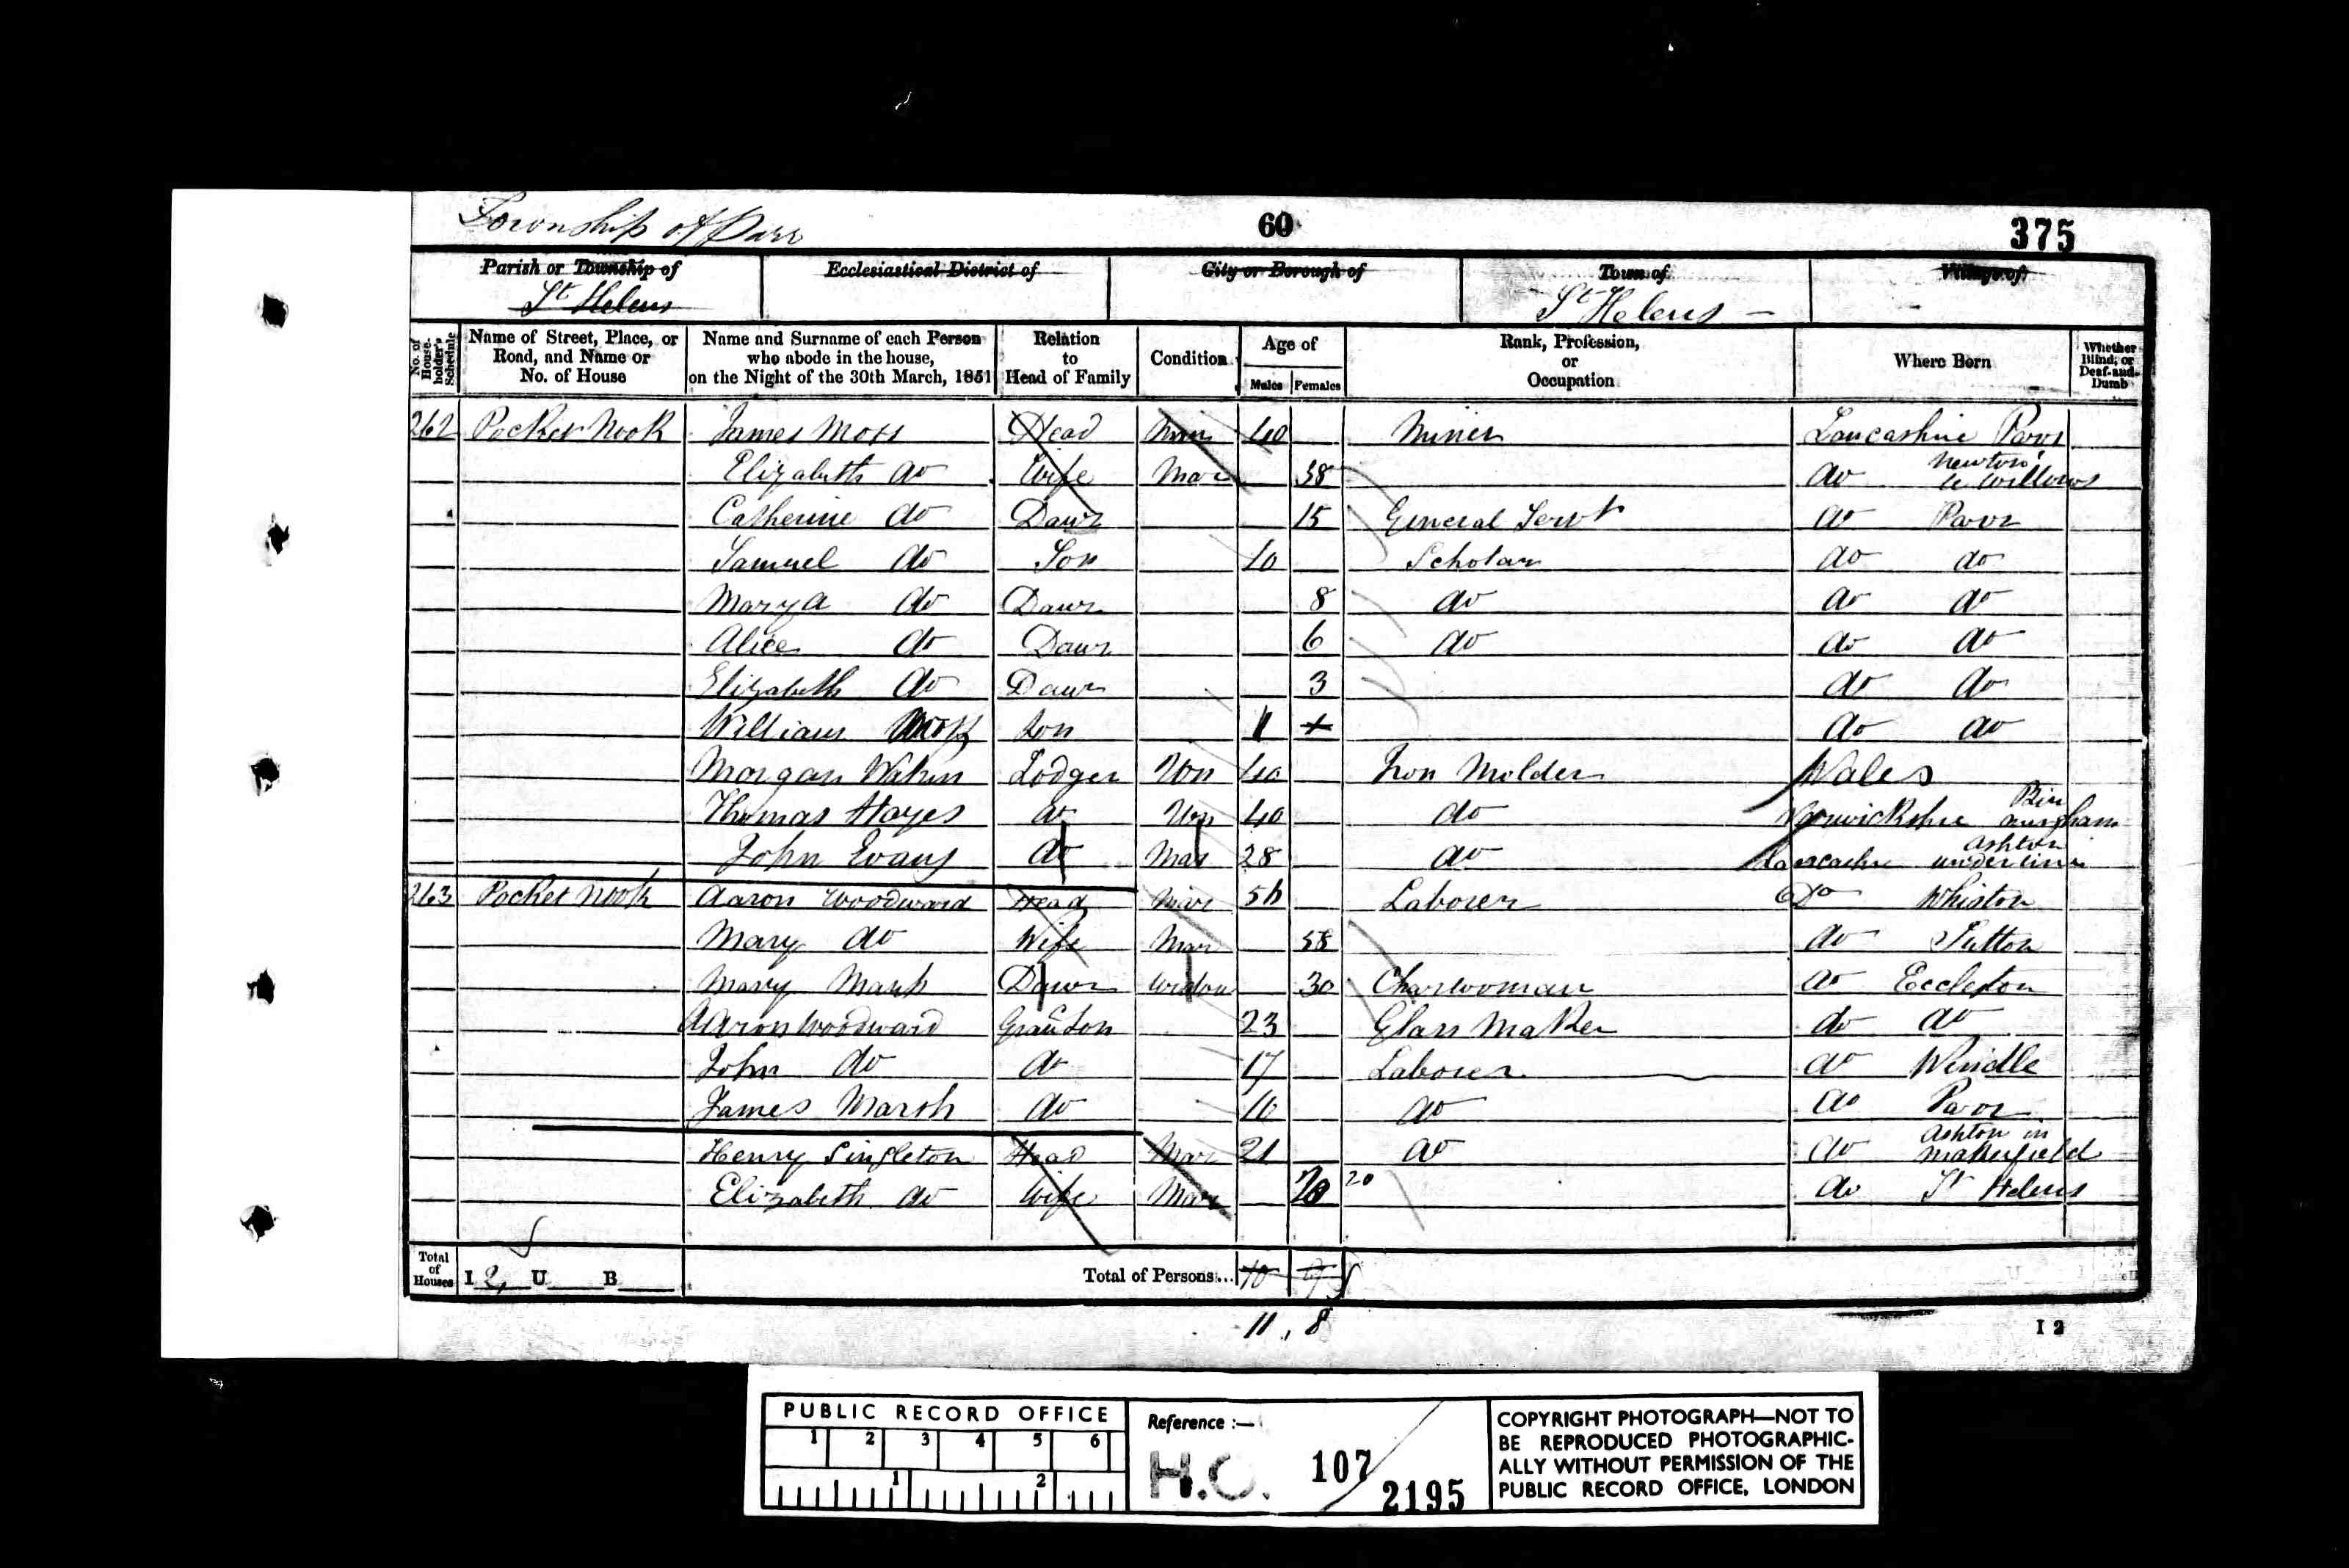 Township of Parr 60 375
Parish or Township of Ecclesiastical District of City or Borough of Town of Village of
St Helens St Helens
No. of House-holder's Schedule
Name of Street, Place, or Road, and Name or No. of House
Name and Surname of each Person who abode in the house, on the Night of the 30th March, 1851
Relation to Head of Family
Condition
Age of
Males Females
Rank, Profession, or Occupation
Where Born
Whether Blind, or Deaf-and-Dumb
262 Pocket Nook James Moss Head Mar 40 Miner Lancashire Parr
Elizabeth do Wife Mar 38 do Newton le Willows
Catherine do Dawr 15 General Servt do Parr
Samuel do Son 10 Scholar do do
Mary A do Dawr 8 do do do
Alice do Dawr 6 do do do
Elizabeth do Dawr 3 do do
William Moss Son 1 do do
Morgan Lodger Un 40 Iron Molder Wales
Thomas Hayes do Un 40 do Warwickshire Birmingham
John Evans do Mar 28 do Lancashire Ashton underline
263 Pocket Nook Aaron Woodward Head Mar 56 Laborer Do Whiston
Mary do Wife Mar 58 do Sutton
Mary Marsh Dawr Widow 30 Charwoman do Eccleston
Aaron Woodward Granson 23 Glass Maker do do
John do do 17 Laborer do Windle
James Marsh do 10 do do Parr
Henry Singleton Head Mar 21 do do Ashton in Makerfield
Elizabeth do Wife Mar 20 20 do St Helens
Total of Houses I 2 U B Total of Persons... 10 9
11 8
I 2
PUBLIC RECORD OFFICE
1 2 3 4 5 6
1 2
Reference :—
H.O. 107/2195
COPYRIGHT PHOTOGRAPH—NOT TO
BE REPRODUCED PHOTOGRAPHIC-
ALLY WITHOUT PERMISSION OF THE
PUBLIC RECORD OFFICE, LONDON